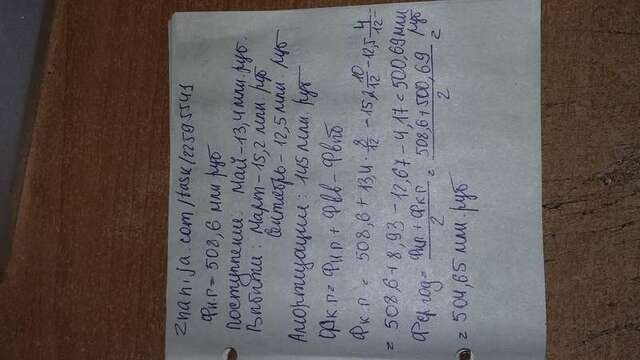 Znanija.com/task/22505541
Фнп = 508,6 млн руб
Поступление: Май - 13,4 млн. руб.
Выбыти: Март - 15,2 млн руб
Сентябрь - 12,5 млн. руб
Амортизации: 145 млн руб
Фкп = Фнп + Фвв - Фвыб
Фкп = 508,6 + 13,4 · 8/12 - 15,2 · 10/12 - 12,5 · 4/12 =
= 508,6 + 8,93 - 12,67 - 4,17 = 500,69 млн руб
Фср год = Фнп + Фкп / 2 = 508,6 + 500,69 / 2 =
= 504,65 млн руб